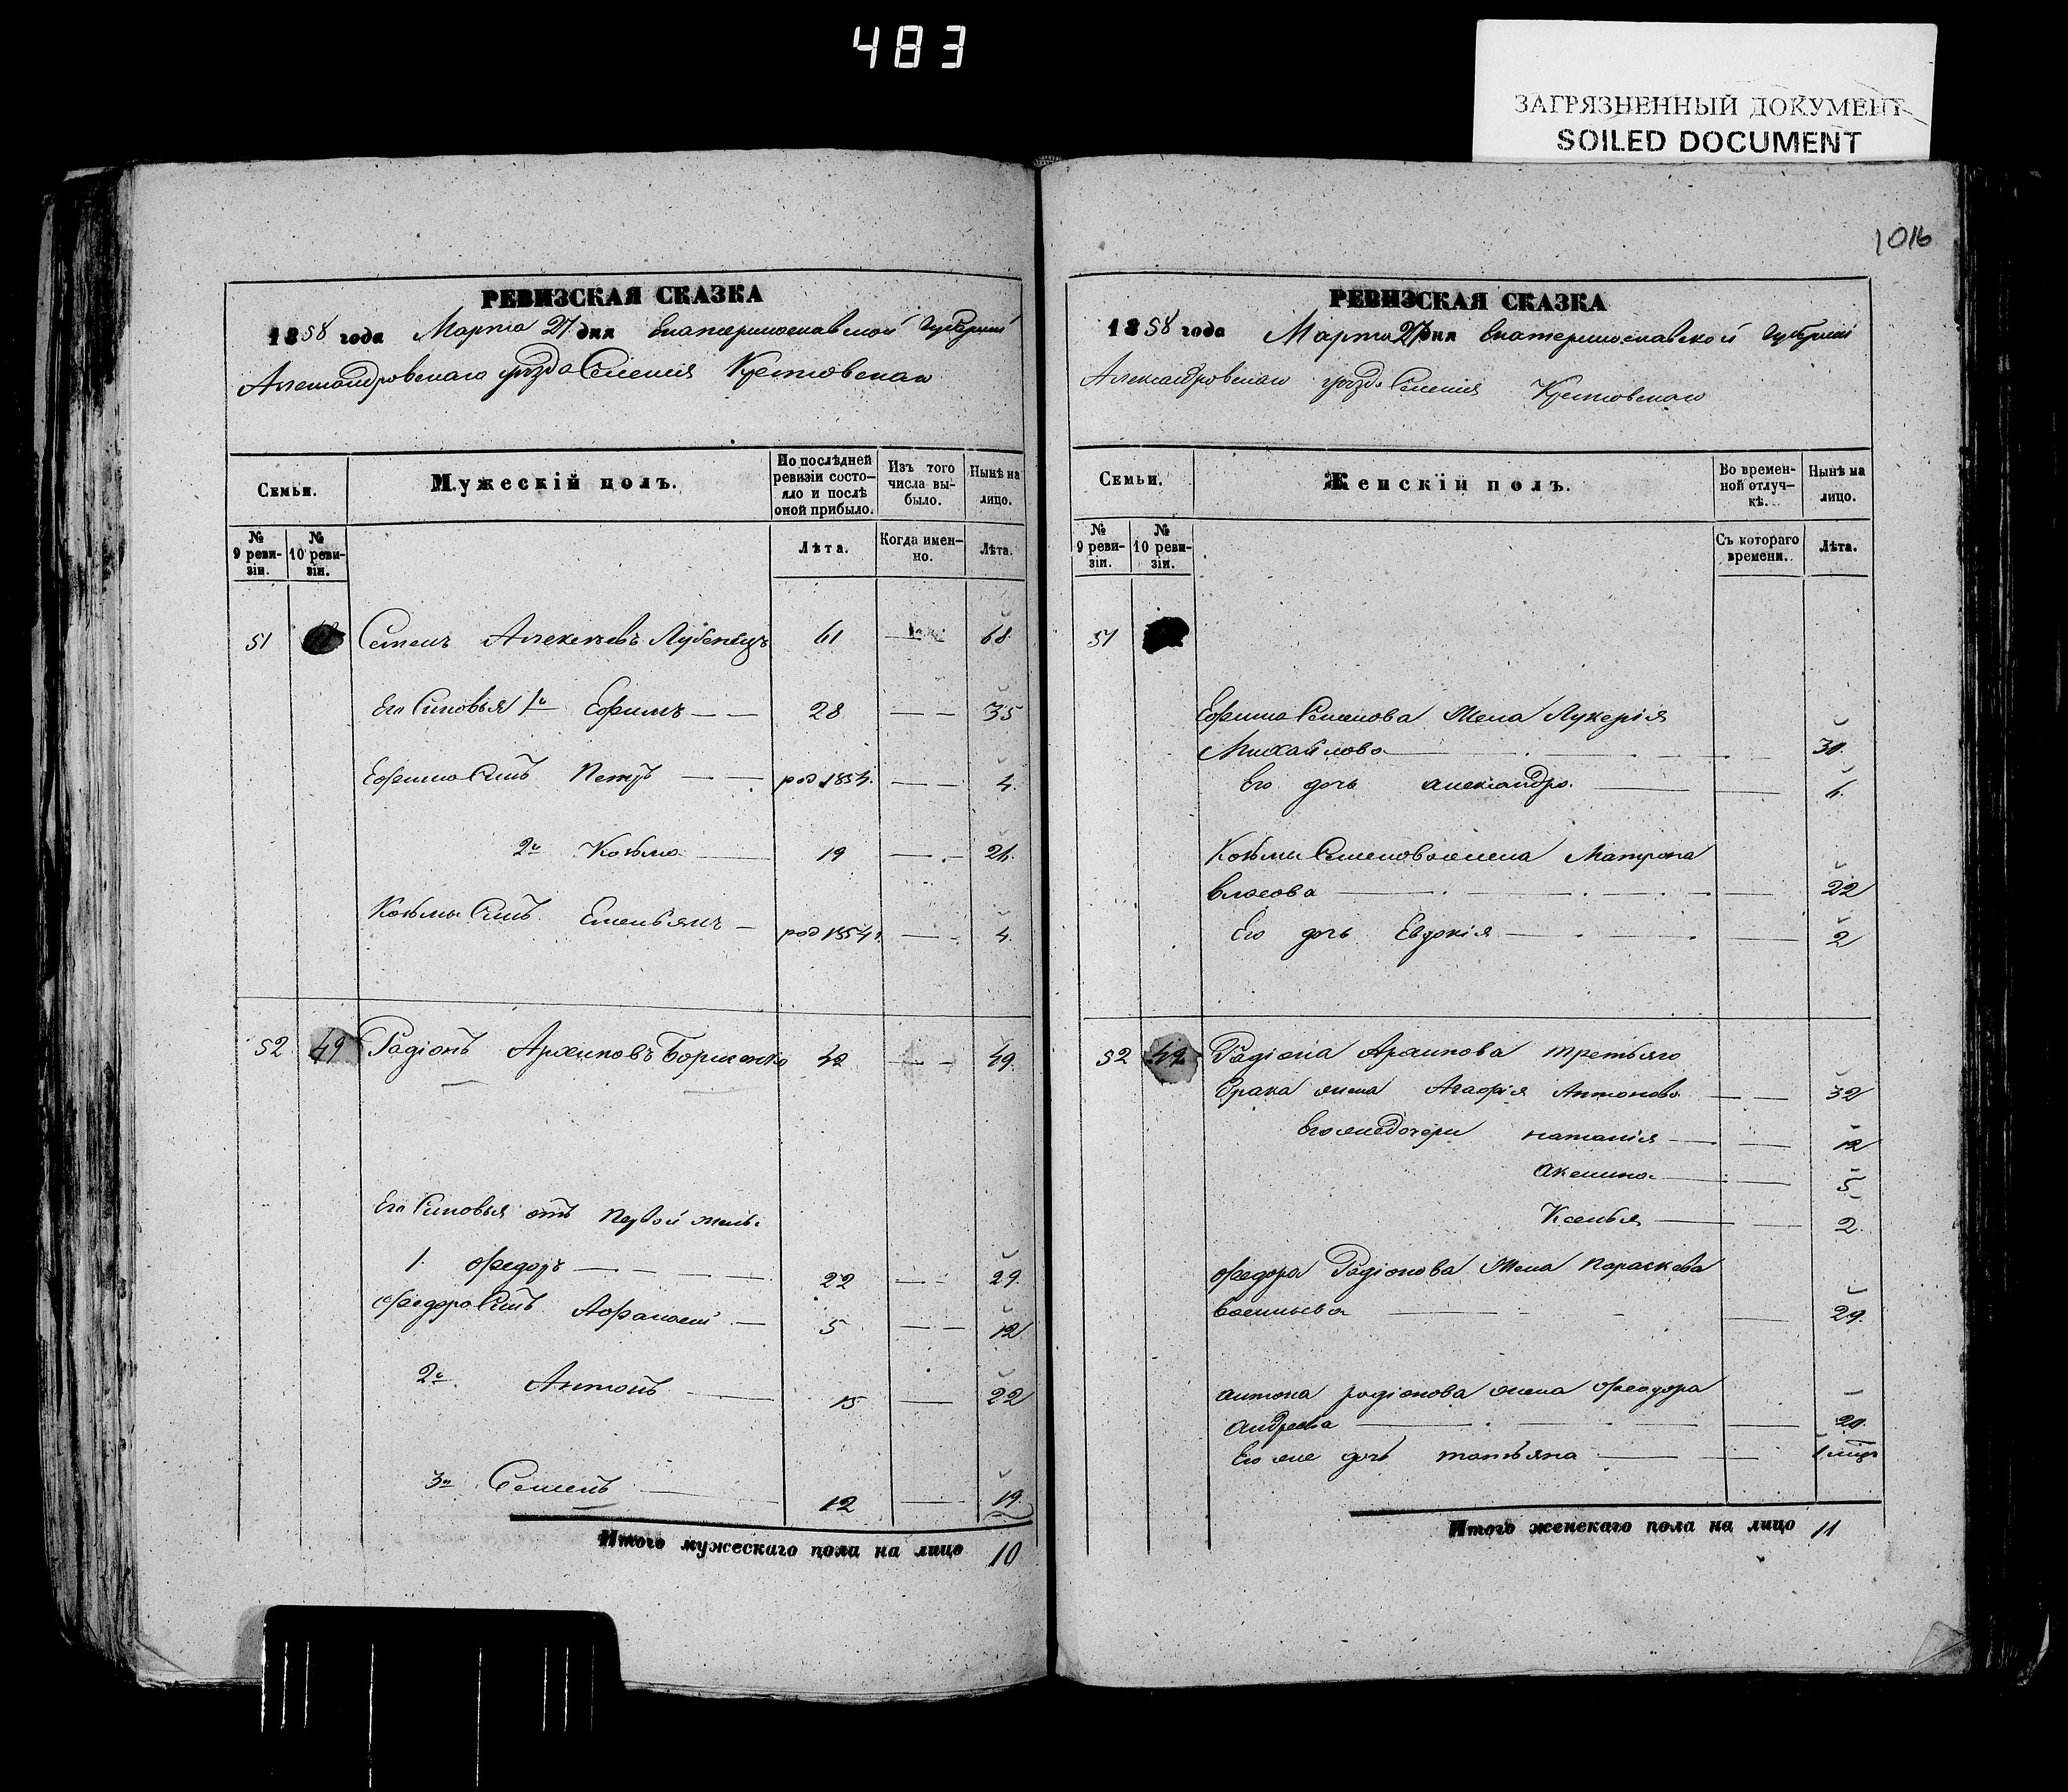 483
ЗАГРЯЗНЕННЫЙ ДОКУМЕНТ
SOILED DOCUMENT
РЕВИЗСКАЯ СКАЗКА
1858 года Марта 27 дня Екатеринославской Губерніи
Александровскаго уезда Селенія
Семьи.
Мужескій полъ.
По послѣдней ревизіи состо-
яло и послѣ
оной прибыло.
Изъ того
числа вы-
было.
Нынѣ на
лицо.
№
9 реви-
зіи.
№
10 реви-
зіи.
Лѣта.
Когда имен-
но.
Лѣта.
51 Семенъ Алексѣевъ Лубенецъ 61 68
Его Синовья 1й Ефимъ 28 35
Ефима Сынъ Петръ род 1854. 4.
2й Козьма 19 26.
Козьмы Сынъ Емельянъ род 1854. 4.
52 49 Радіонъ Архиповъ Борисенко 42 49.
Его Синовья отъ Первой жены
1. Федоръ 22 29.
Федора Сынъ Афанасій 5 12
2й Антонъ 15 22
3й Семенъ 12 19.
Итого мужескаго пола на лицо 10
1016
РЕВИЗСКАЯ СКАЗКА
1858 года Марта 27 дня Екатеринославской Губерніи
Александровскаго уезда Селенія
Семьи.
Женскій полъ.
Во времен-
ной отлуч-
кѣ.
Нынѣ на
лицо.
№
9 реви-
зіи.
№
10 реви-
зіи.
Съ котораго
времени.
Лѣта.
51
Ефима Семенова Жена Лукерія
Михайлова 30.
Его дочь Александра 6.
Козьмы Семенова жена Матрона
Власова 22
Его дочь Евдокія 2
52 49 Радіона Архипова третьяго
брака жена Агафія Антонова 32
Его же дочери Наталія 12
Акелина 5
Ксенья 2
Федора Радіонова Жена Параскева
Васильева 29.
Антона Радіонова жена Феодора
Андреева 20.
Его же дочь Татьяна 1
Итого женскаго пола на лицо 11